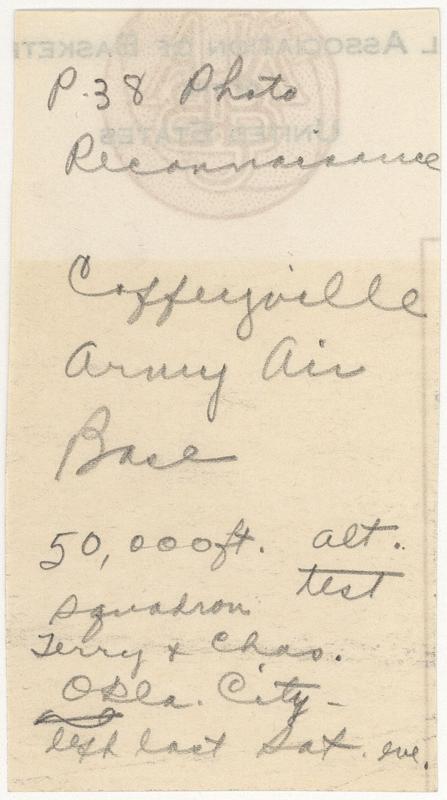 L ASSOCIATION OF BASKET
UNITED STATES
P.38 Photo
Reconnaissance
Coffeyville
Army Air
Base
50,000ft. alt.
test
squadron
Terry & Chas.
Okla. City-
left last Sat. eve.